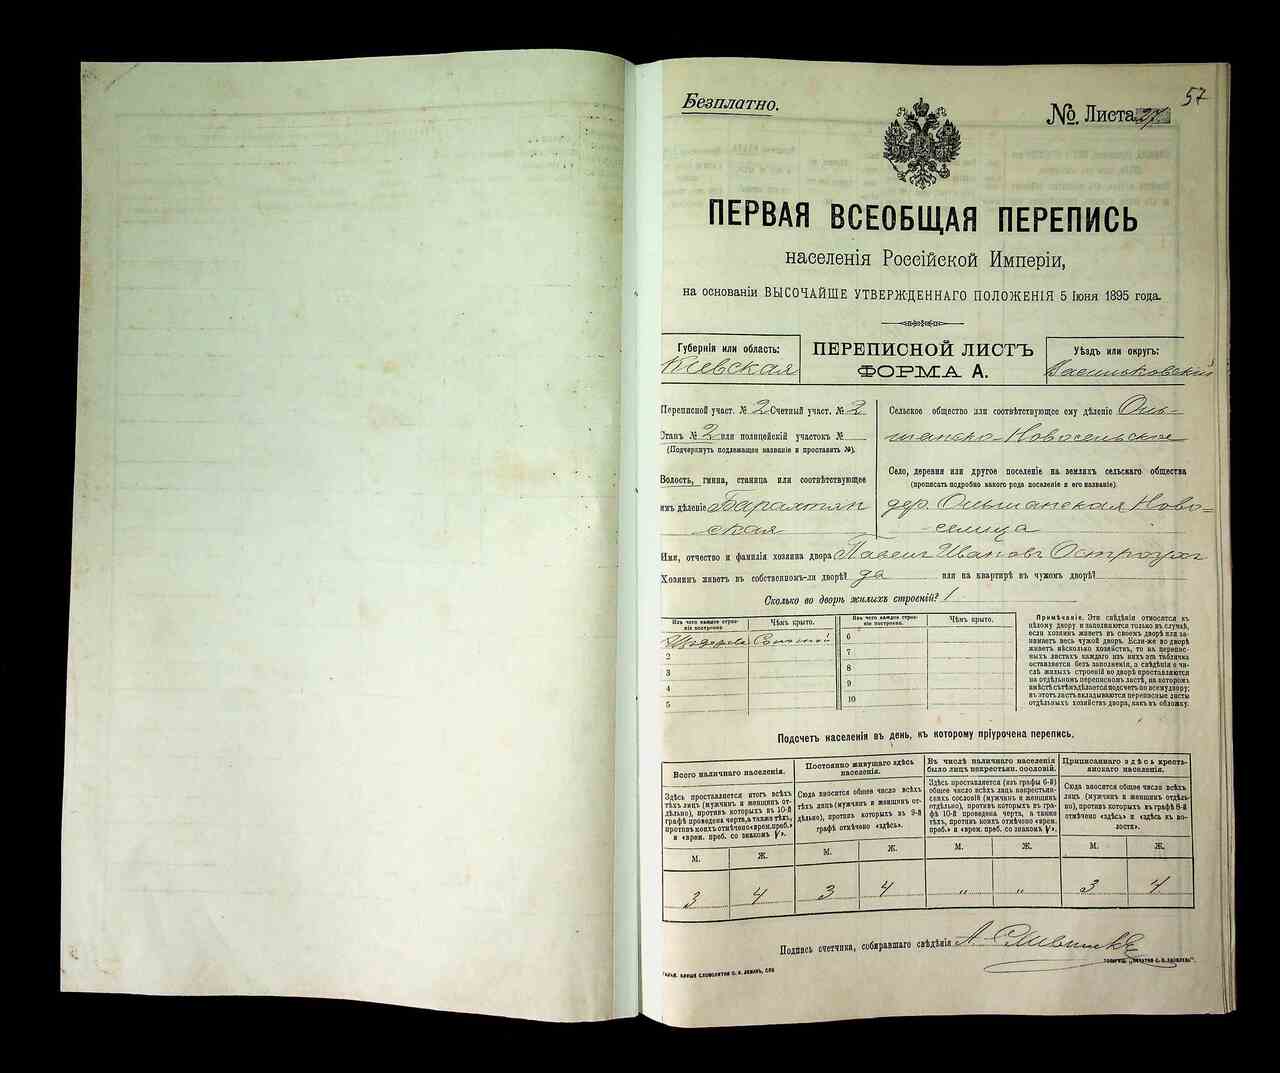 57
Безплатно.
№. Листа 27
ПЕРВАЯ ВСЕОБЩАЯ ПЕРЕПИСЬ
населенія Россійской Имперіи,
на основаніи ВЫСОЧАЙШЕ УТВЕРЖДЕННАГО ПОЛОЖЕНІЯ 5 Іюня 1895 года.
Губернія или область:
Кіевская
ПЕРЕПИСНОЙ ЛИСТЪ
ФОРМА А.
Уѣздъ или округъ:
Васильковскій
Переписной участ. № 2 Счетный участ. № 2
Станъ № 2 или полицейскій участокъ №
(Подчеркнуть подлежащее названіе и проставить №).
Волость, гмина, станица или соотвѣтствующее
имъ дѣленіе Барахтян
ская
Сельское общество или соотвѣтствующее ему дѣленіе Оль-
шанско-Новосельское
Село, деревня или другое поселеніе на земляхъ сельскаго общества
(прописать подробно какого рода поселеніе и его названіе).
дер. Ольшанская Ново-
селица
Имя, отчество и фамилія хозяина двора Павелъ Ивановъ Остроухъ
Хозяинъ живетъ въ собственномъ-ли дворѣ? да или на квартирѣ въ чужомъ дворѣ?
Сколько во дворѣ жилыхъ строеній? 1
Изъ чего каждое строе-
ніе построено.
Чѣмъ крыто.
Изъ чего каждое строе-
ніе построено.
Чѣмъ крыто.
Соломой
6
2
7
3
8
4
9
5
10
Примѣчаніе. Эти свѣдѣнія относятся къ
цѣлому двору и заполняются только въ случаѣ,
если хозяинъ живетъ въ своемъ дворѣ или за-
нимаетъ весь чужой дворъ. Если-же во дворѣ
живетъ нѣсколько хозяйствъ, то на перепис-
ныхъ листахъ каждаго изъ нихъ эта табличка
оставляется безъ заполненія, а свѣдѣнія о чи-
слѣ жилыхъ строеній во дворѣ проставляются
на отдѣльномъ переписномъ листѣ, на которомъ
вмѣстѣ съ тѣмъ дѣлается подсчетъ по всему двору;
въ этотъ листъ вкладываются переписные листы
отдѣльныхъ хозяйствъ двора, какъ въ обложку.
Подсчетъ населенія въ день, къ которому пріурочена перепись.
Всего наличнаго населенія.
Постоянно живущаго здѣсь
населенія.
Въ числѣ наличнаго населенія
было лицъ некрестьян. сословій.
Приписаннаго здѣсь кресть-
янскаго населенія.
Здѣсь проставляется итогъ всѣхъ
тѣхъ лицъ (мужчинъ и женщинъ от-
дѣльно), противъ которыхъ въ 10-й
графѣ проведена черта, а также тѣхъ,
противъ коихъ отмѣчено «врем. преб.»
и «врем. преб. со знакомъ V».
Сюда вносится общее число всѣхъ
тѣхъ лицъ (мужчинъ и женщинъ от-
дѣльно), противъ которыхъ въ 9-й
графѣ отмѣчено «здѣсь».
Здѣсь проставляется (изъ графы 6-й)
общее число всѣхъ лицъ некрестьян-
скихъ сословій (мужчинъ и женщинъ
отдѣльно), противъ которыхъ въ гра-
фѣ 10-й проведена черта, а также
тѣхъ, противъ коихъ отмѣчено «врем.
преб.» и «врем. преб. со знакомъ V».
Сюда вносится общее число всѣхъ
лицъ (мужчинъ и женщинъ отдѣль-
но), противъ которыхъ въ графѣ 8-й
отмѣчено «здѣсь» и «здѣсь въ во-
лости».
М. Ж. М. Ж. М. Ж. М. Ж.
3 4 3 4 „ „ 3 4
Подпись счетчика, собиравшаго свѣдѣнія А.